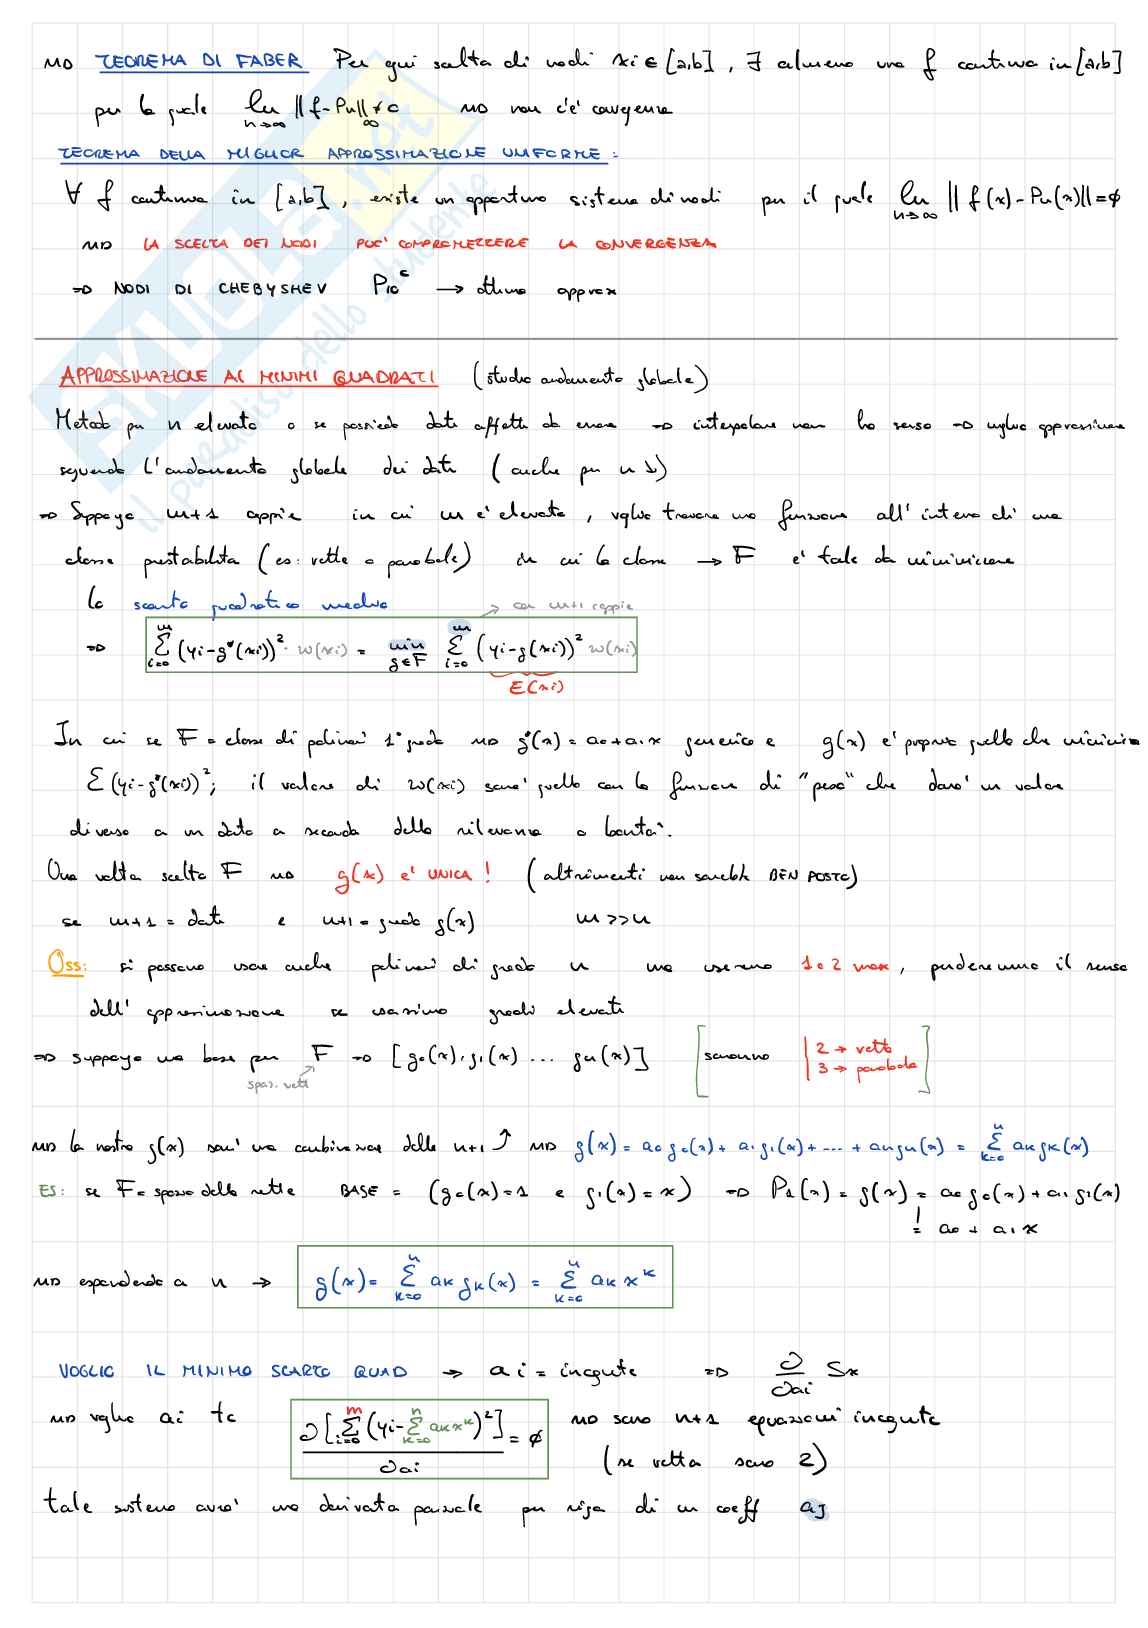 ⇒ TEOREMA DI FABER Per ogni scelta di nodi xi ∈ [a,b], ∃ almeno una f continua in [a,b]
per la quale lim n→∞ ||f-Pn||∞ ≠ 0 ⇒ non c'è convergenza
TEOREMA DELLA MIGLIOR APPROSSIMAZIONE UNIFORME:
∀ f continua in [a,b], esiste un opportuno sistema di nodi per il quale lim n→∞ ||f(x)-Pn(x)||=∅
⇒ LA SCELTA DEI NODI PUO' COMPROMETTERE LA CONVERGENZA
⇒ NODI DI CHEBYSHEV P10^c → ottima approx
APPROSSIMAZIONE AI MINIMI QUADRATI (studio andamento globale)
Metodo per n elevato o se possiedo dati affetti da errore ⇒ interpolare non ha senso ⇒ voglio approssimare
seguendo l'andamento globale dei dati (anche per n ↓)
⇒ Suppongo m+1 coppie in cui m è elevato, voglio trovare una funzione all'interno di una
classe prestabilita (es: rette o parabole) in cui la classe → F è tale da minimizzare
lo scarto quadratico medio → con m+1 coppie
⇒ Σ i=0 m (yi-g*(xi))²· w(xi) = min g∈F Σ i=0 m (yi-g(xi))² w(xi)
E(xi)
In cui se F = classe di polinomi 1° grado ⇒ g*(x) = a0+a1x generico e g(x) è proprio quello che minimizza
Σ(yi-g*(xi))²; il valore di w(xi) sarà quello con la funzione di "peso" che darà un valore
diverso a un dato a seconda della rilevanza o bontà.
Una volta scelta F ⇒ g(x) è UNICA! (altrimenti non sarebbe BEN POSTO)
se m+1 = dati e n+1 = grado g(x) m>>n
Oss: si possono usare anche polinomi di grado n ma useremo 1 o 2 max, perderemmo il senso
dell'approssimazione se usassimo gradi elevati
⇒ suppongo una base per F ⇒ [g0(x), g1(x) ... gn(x)] [saranno | 2 → retta
spaz. vett 3 → parabola]
⇒ la nostra g(x) sarà una combinazione delle n+1 ↑ ⇒ g(x) = a0g0(x)+a1g1(x)+...+angn(x) = Σ k=0 n akgk(x)
ES: se F = spazio delle rette BASE = (g0(x)=1 e g1(x)=x) ⇒ P1(x) = g(x) = a0g0(x)+a1g1(x)
= a0+a1x
⇒ espandendo a n → g(x) = Σ k=0 n akgk(x) = Σ k=0 n akx^k
VOGLIO IL MINIMO SCARTO QUAD → ai = incognite ⇒ ∂/∂ai Sx
⇒ voglio ai tc ∂[Σ i=0 m (yi-Σ k=0 n akx^k)²]/∂ai = ∅ ⇒ sono n+1 equazioni incognite
(se retta sono 2)
tale sistema avrà una derivata parziale per riga di un coeff aj